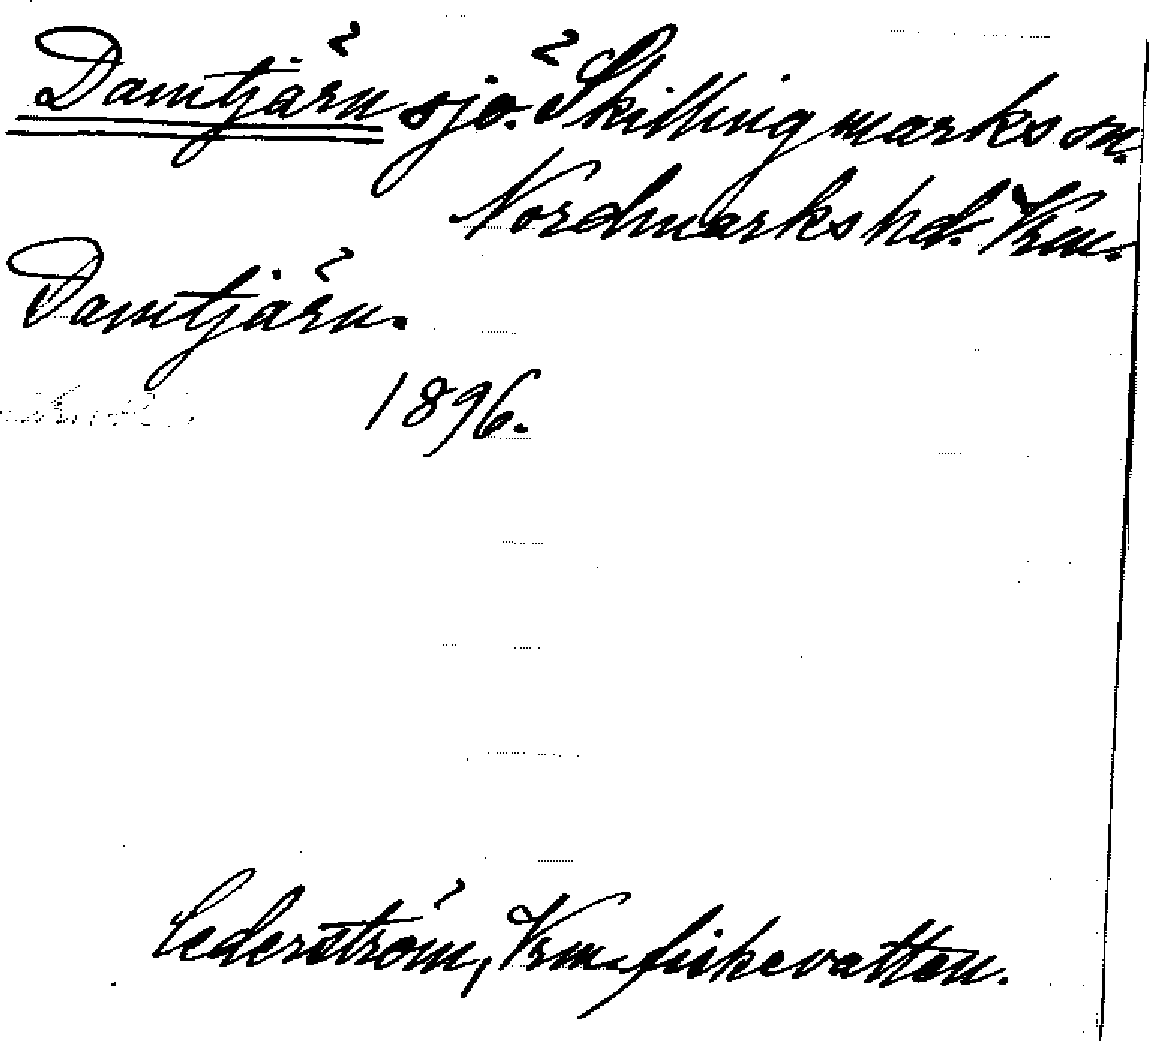 Damtjärn sjö. Skillingmarks sn.
Nordmarks hd. Vrm.
Damtjärn.
1896.
Cederström, Vrm. fiskevatten.